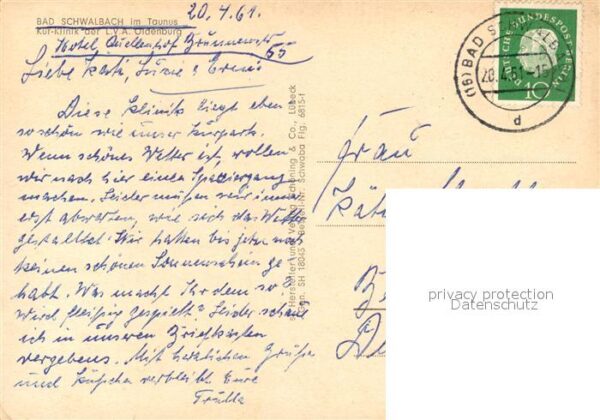 20.4.61.
BAD SCHWALBACH im Taunus
Kur-Klinik der L.V.A. Oldenburg
Hotel Quellenhof Brunnenstr
55
Liebe
Diese Klinik liegt eben
so schön wie unser Kurpark.
Wenn schönes Wetter ist, wollen
wir nach hier einen Spaziergang
machen. Leider müssen wir immer
erst abwarten, wie sich das Wetter
gestaltet. Wir hatten bis jetzt noch
keinen schönen Sonnenschein ge
habt. Was macht Ihr denn so
wird fleißig gespielt? Leider schaue
ich in unseren Briefkasten
vergebens. Mit herzlichen Grüßen
und Küßchen verbleibt Eure
Schöning & Co., Lübeck
Schwaba Flg. 6815-f
(16) BAD
20.4.61
d
DEUTSCHE BUNDESPOST BERLIN
10
Frau
privacy protection
Datenschutz